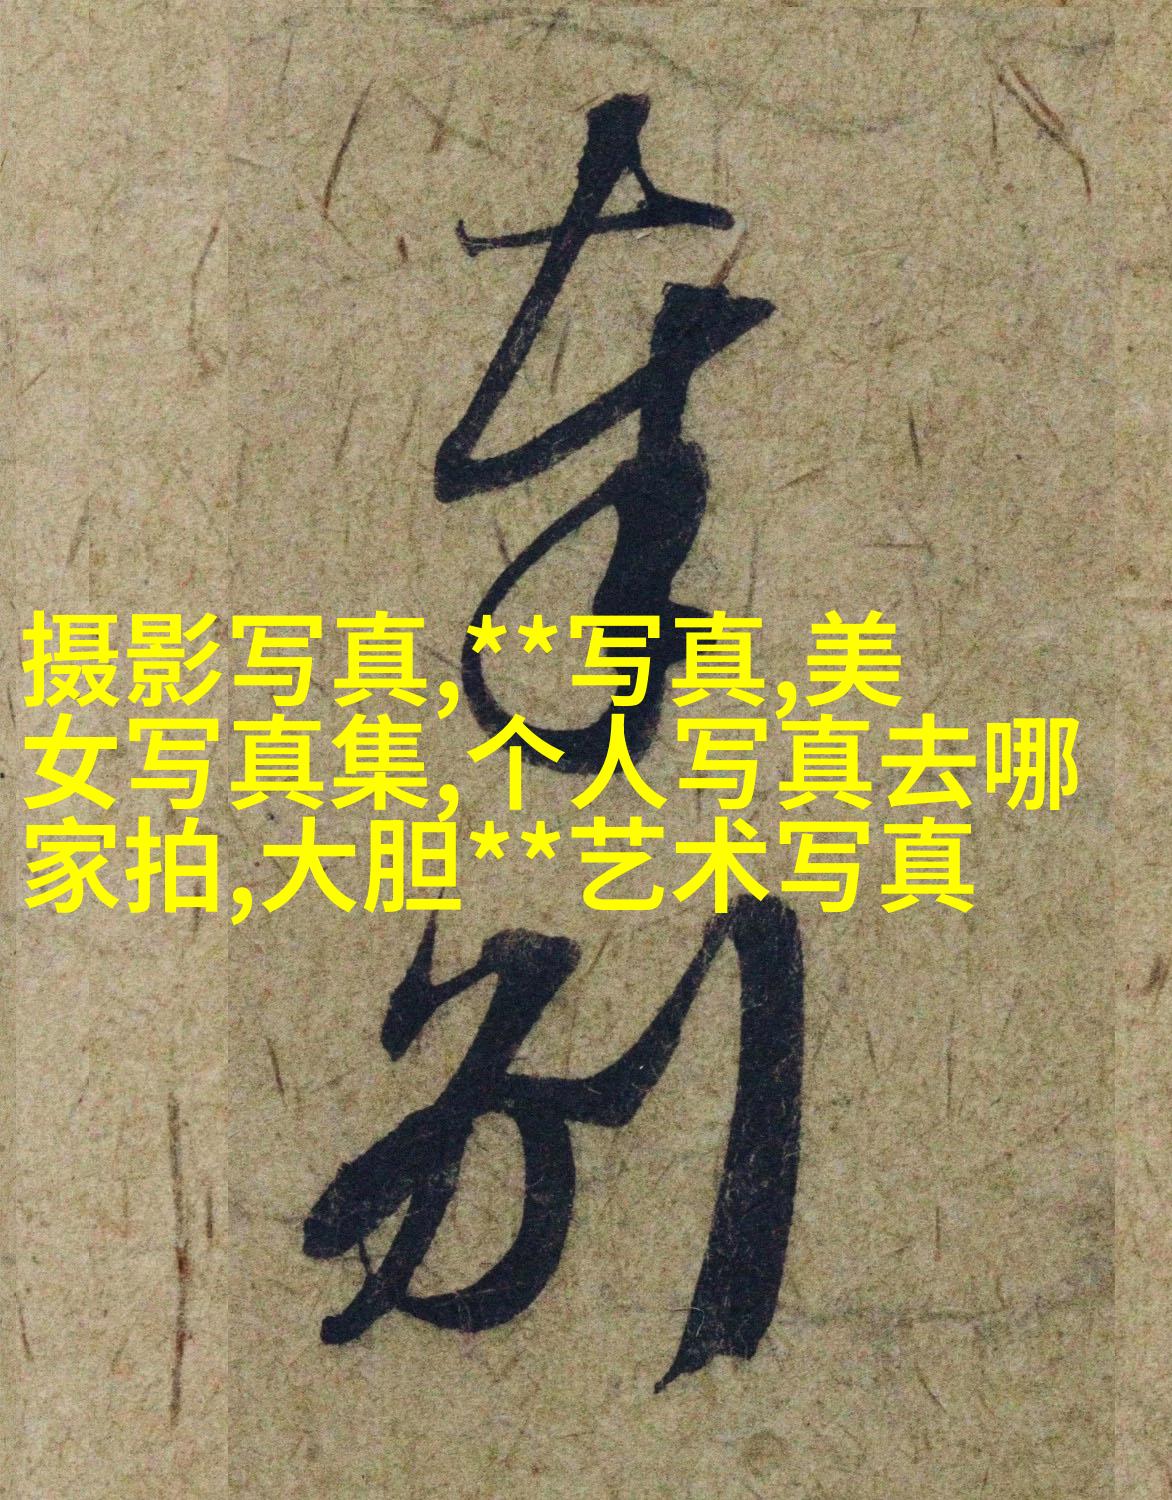 摄影写真,**写真,美
女写真集,个人写真去哪
家拍,大胆**艺术写真
别